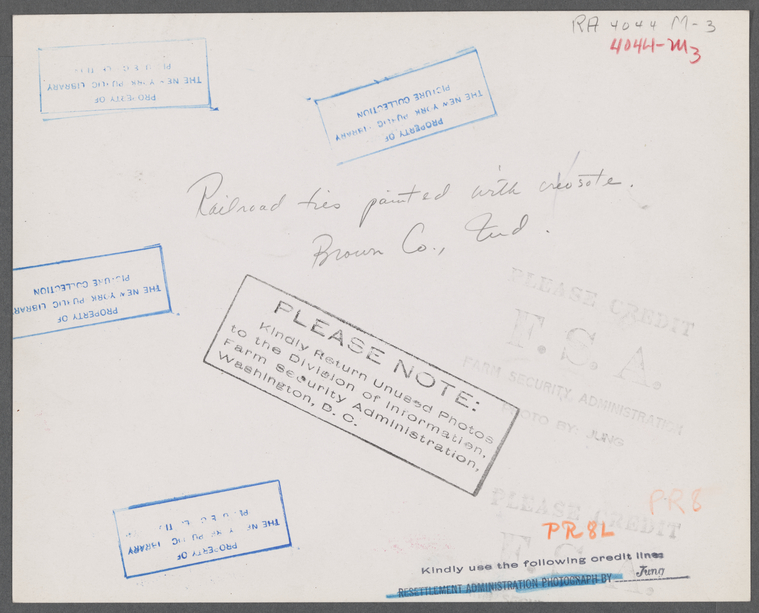 RA 4044 M-3
4044-M3
PROPERTY OF
THE NEW YORK PUBLIC LIBRARY
PROPERTY OF
THE NEW YORK PUBLIC LIBRARY
PICTURE COLLECTION
Railroad ties painted with creosote.
Brown Co., Ind.
PROPERTY OF
THE NEW YORK PUBLIC LIBRARY
PICTURE COLLECTION
PLEASE CREDIT
F.S.A.
FARM SECURITY ADMINISTRATION
PHOTO BY: JUNG
PLEASE NOTE:
Kindly Return Unused Photos
to the Division of Information,
Farm Security Administration,
Washington, D. C.
PROPERTY OF
THE NEW YORK PUBLIC LIBRARY
PR8
PLEASE CREDIT
F.S.A.
PR8L
Kindly use the following credit line:
RESETTLEMENT ADMINISTRATION PHOTOGRAPH BY Jung